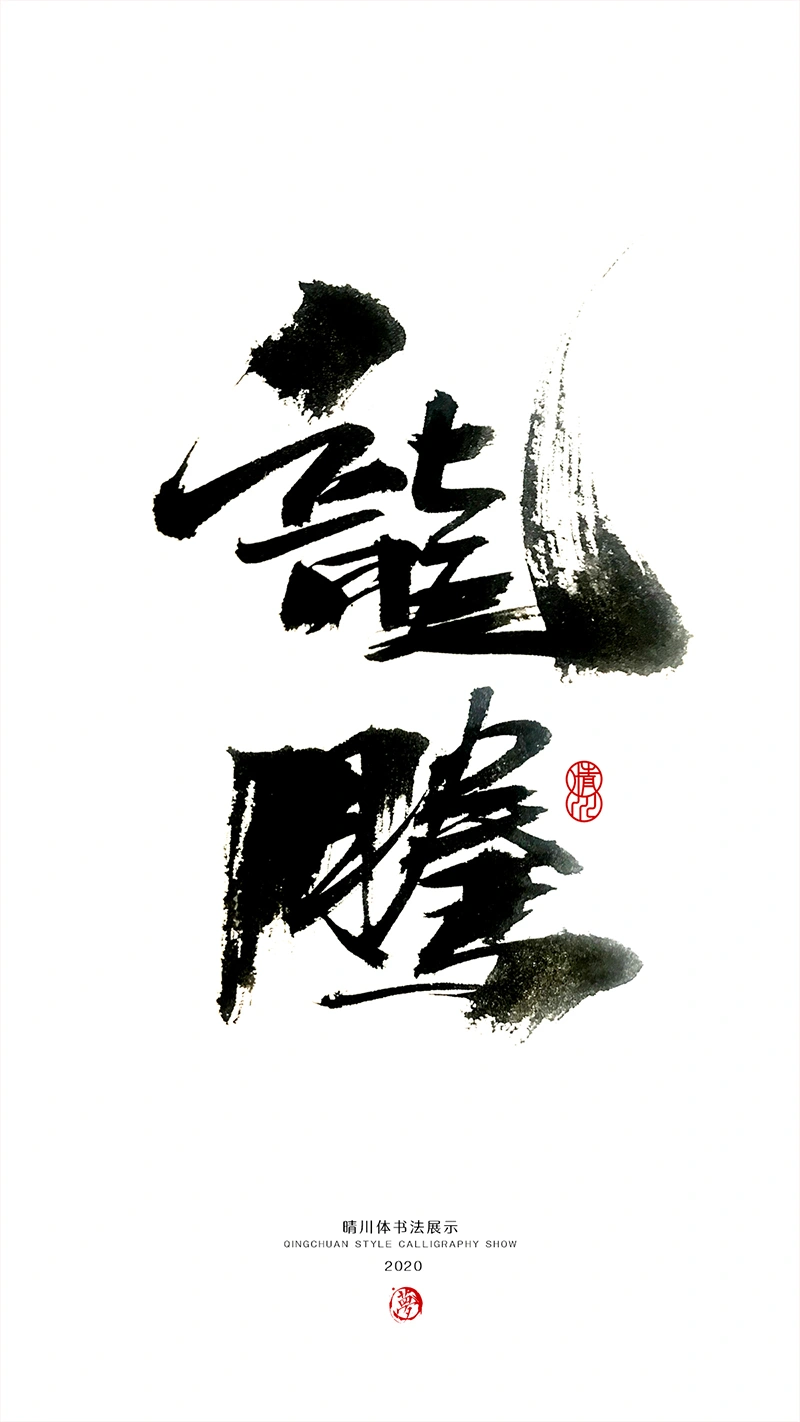 龍
騰
晴川
晴川体书法展示
QINGCHUAN STYLE CALLIGRAPHY SHOW
2020
夢